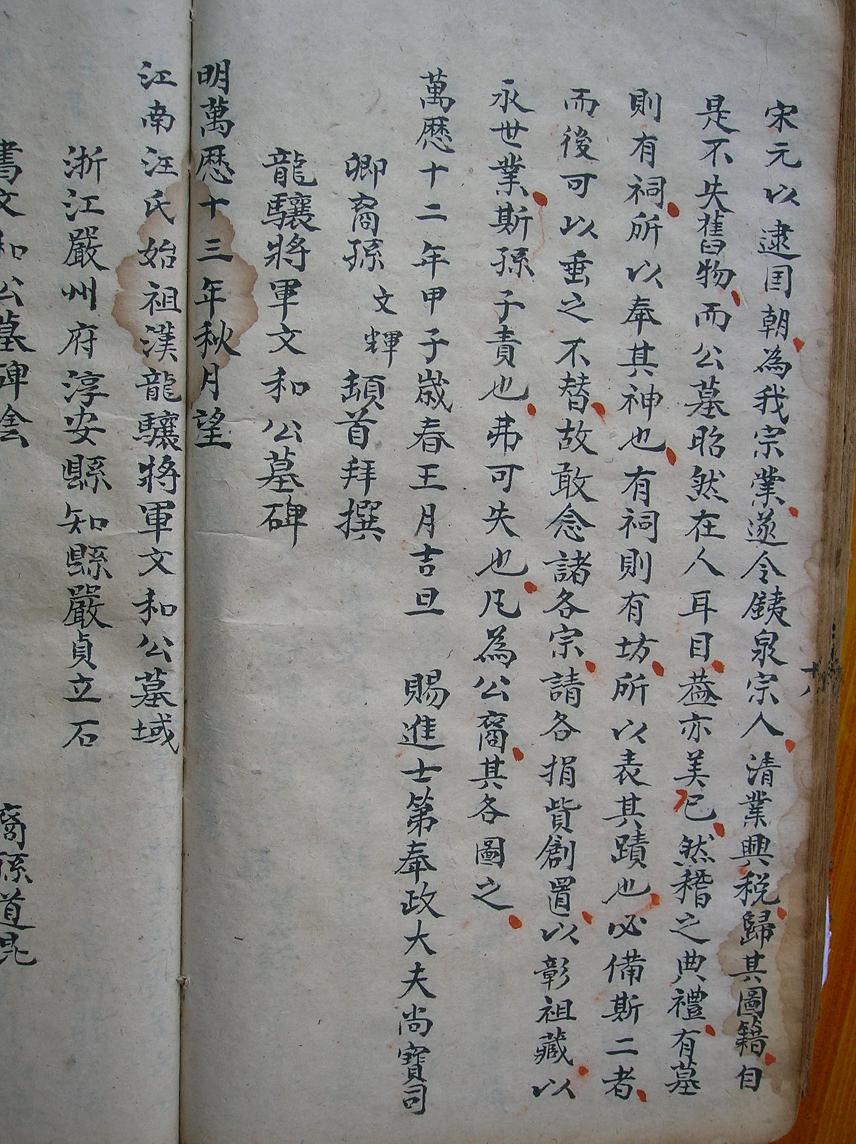 宋元以逮国朝為我宗業遂令銕泉宗人清業興税歸其圖籍自
是不失舊物而公墓昭然在人耳目葢亦美已然稽之典禮有墓
則有祠所以奉其神也有祠則有坊所以表其蹟也必備斯二者
而後可以垂之不替故敢念諸各宗請各捐貲創置以彰祖藏以
永世業斯孫子責也弗可失也凡為公裔其各圖之
萬歷十二年甲子歲春王月吉旦 賜進士第奉政大夫尚寶司
卿裔孫文輝頓首拜撰
龍驤將軍文和公墓碑
明萬歷十三年秋月望
江南汪氏始祖漢龍驤將軍文和公墓域
浙江嚴州府淳安縣知縣嚴貞立石
書文和公墓碑陰 裔孫道昆